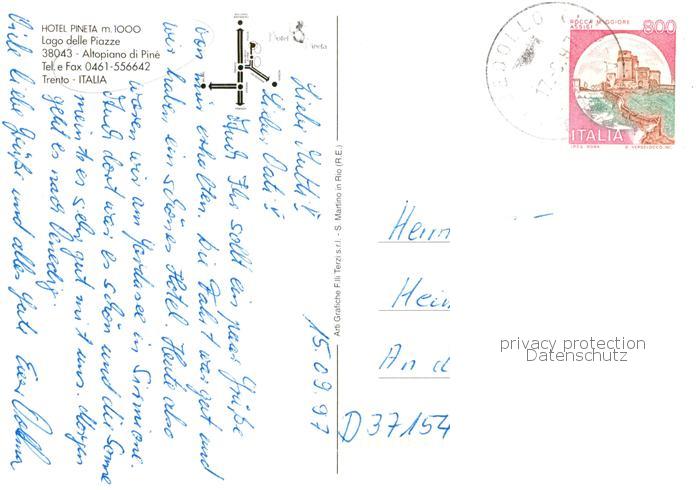 HOTEL PINETA m. 1000
Lago delle Piazze
38043 - Altopiano di Piné
Tel. e Fax 0461-556642
Trento - ITALIA
15.09.97
Liebe Mutti!
Lieber Vati!
Auch Ihr sollt ein paar Grüße
von mir erhalten. Die Fahrt war gut und
wir haben ein schönes Hotel. Heute also
waren wir am Gardasee in Sirmione.
Auch dort war es schön und die Sonne
meinte es sehr gut mit uns. Morgen
geht es nach Venedig.
Viele liebe Grüße und alles Gute Eure
Arti Grafiche F.lli Terzi s.r.l. - S. Martino in Rio (R.E.)
ROCCA MAGGIORE
ASSISI
800
ITALIA
I.P.Z.S. ROMA
Herrn
Hein
An d
D 37154
privacy protection
Datenschutz